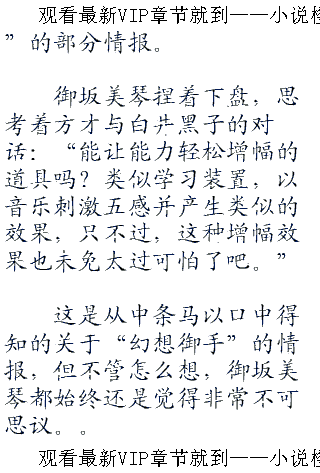 观看最新VIP章节就到——小说
”的部分情报。
御坂美琴捏着下盘，思
考着方才与白井黑子的对
话：“能让能力轻松增幅的
道具吗？类似学习装置，以
音乐刺激五感并产生类似的
效果，只不过，这种增幅效
果也未免太过可怕了吧。”
这是从中条马以口中得
知的关于“幻想御手”的情
报，但不管怎么想，御坂美
琴都始终还是觉得非常不可
思议。。
观看最新VIP章节就到——小说